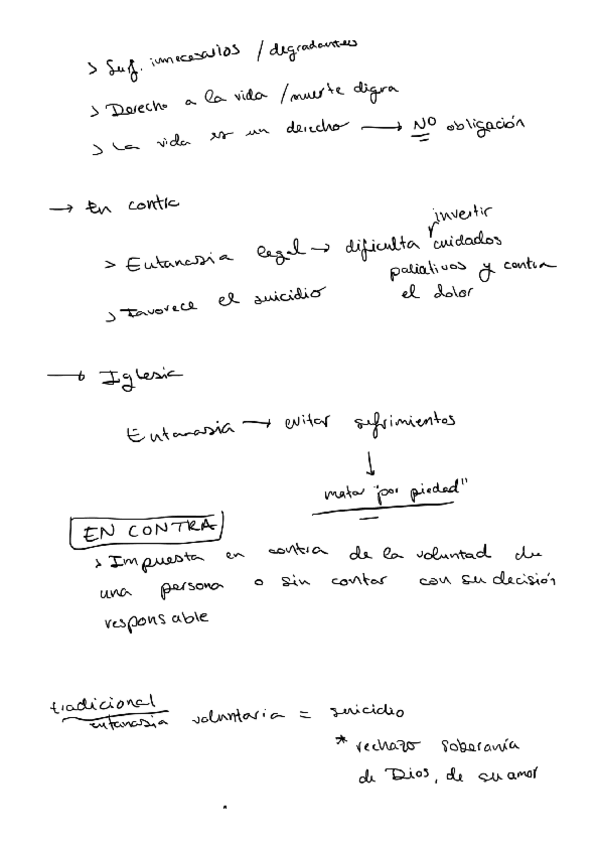 > Suf. innecesarios / degradantes
> Derecho a la vida / muerte digna
> La vida es un derecho → NO obligación
→ En contra
invertir
> Eutanasia legal → dificulta cuidados
paliativos y contra
> Favorece el suicidio
el dolor
→ Iglesia
Eutanasia → evitar sufrimientos
↓
matar "por piedad"
EN CONTRA
> Impuesta en contra de la voluntad de
una persona o sin contar con su decisión
responsable
tradicional
eutanasia voluntaria = suicidio
* rechazo soberanía
de Dios, de su amor